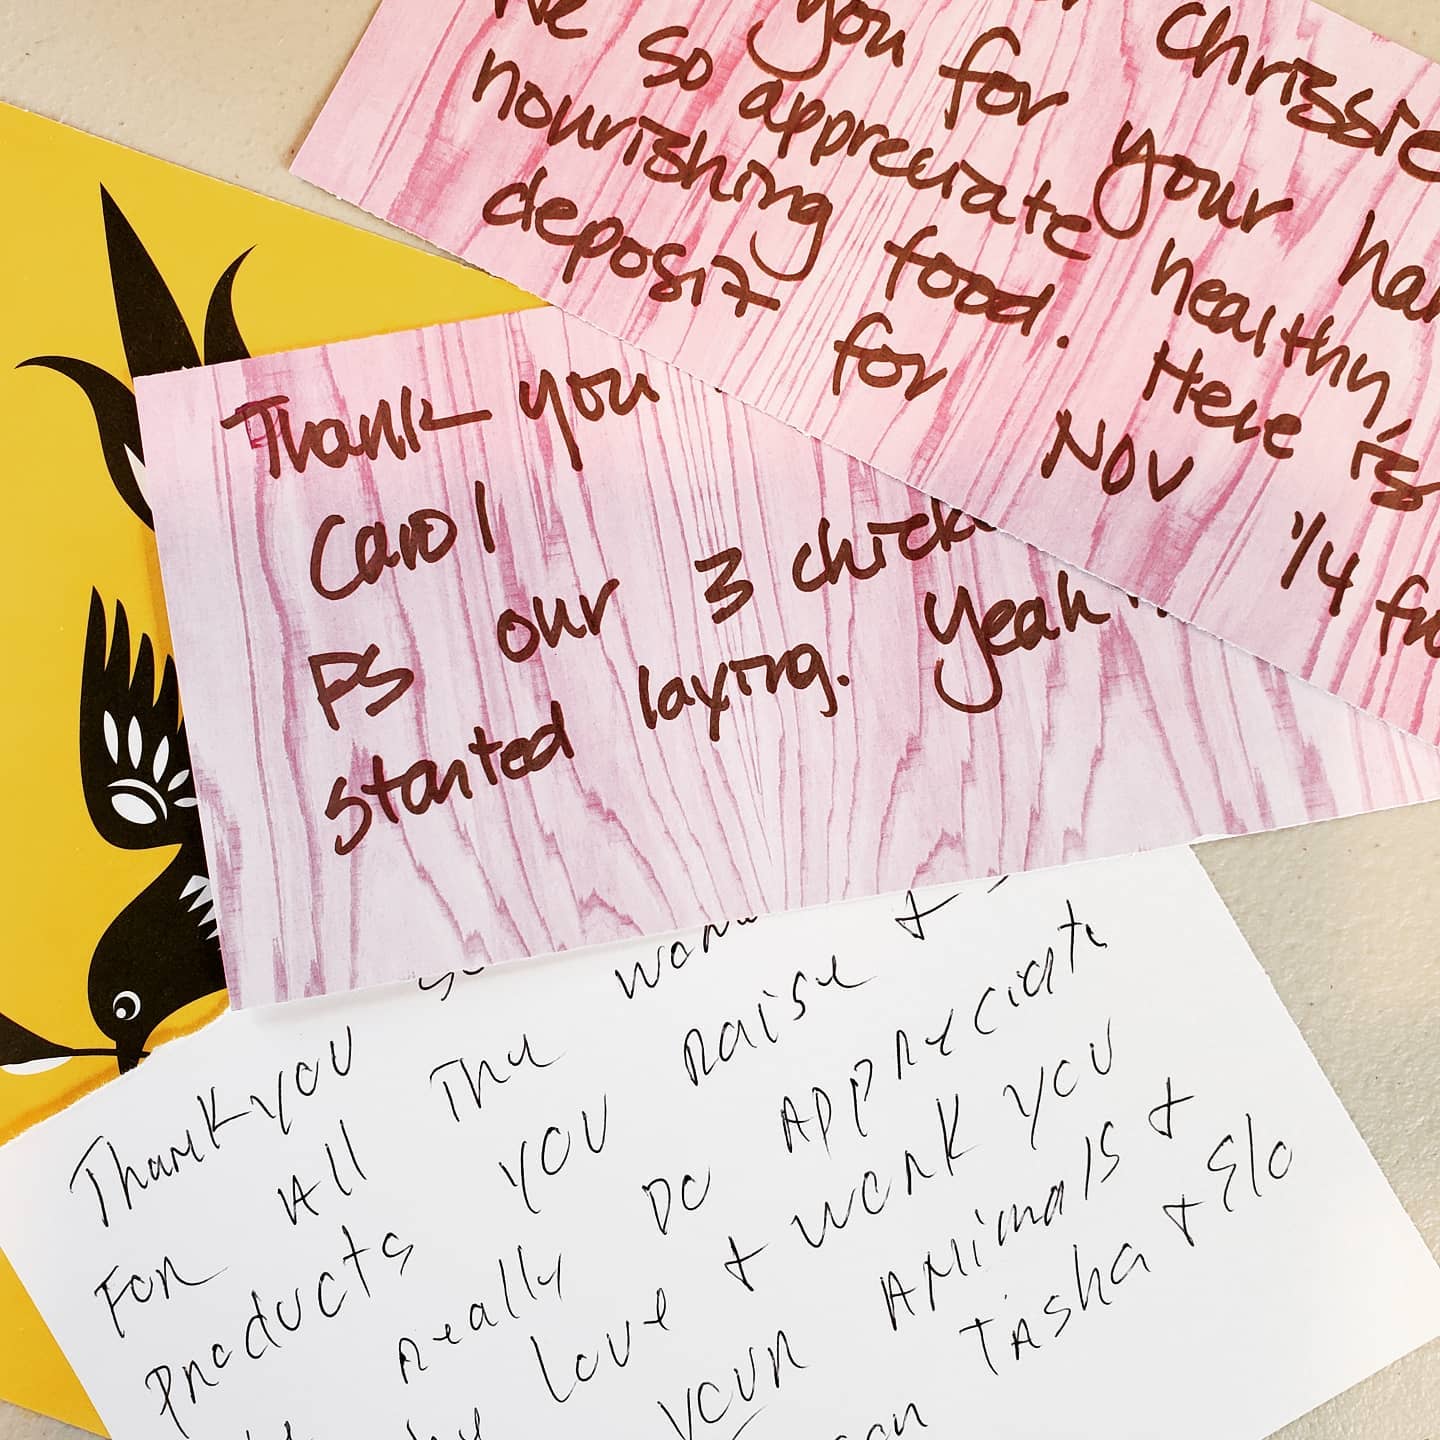 Chrissie
you for your
We so appreciate healthy,
nourishing food. Here is
deposit for Nov 1/4
Thank you
Carol
PS our 3
started laying. Yeah
Thank you
For All The
Products you Raise &
really Do Appreciate
Love & Work you
your Animals &
Tasha & Elo